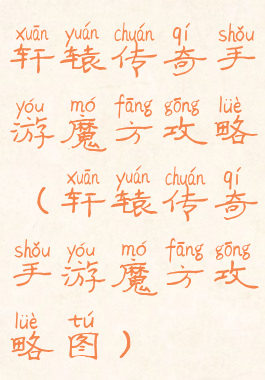 xuān yuán chuán qí shǒu
轩辕传奇手
yóu mó fāng gōng lüè
游魔方攻略
xuān yuán chuán qí
（轩辕传奇
shǒu yóu mó fāng gōng
手游魔方攻
lüè tú
略图）